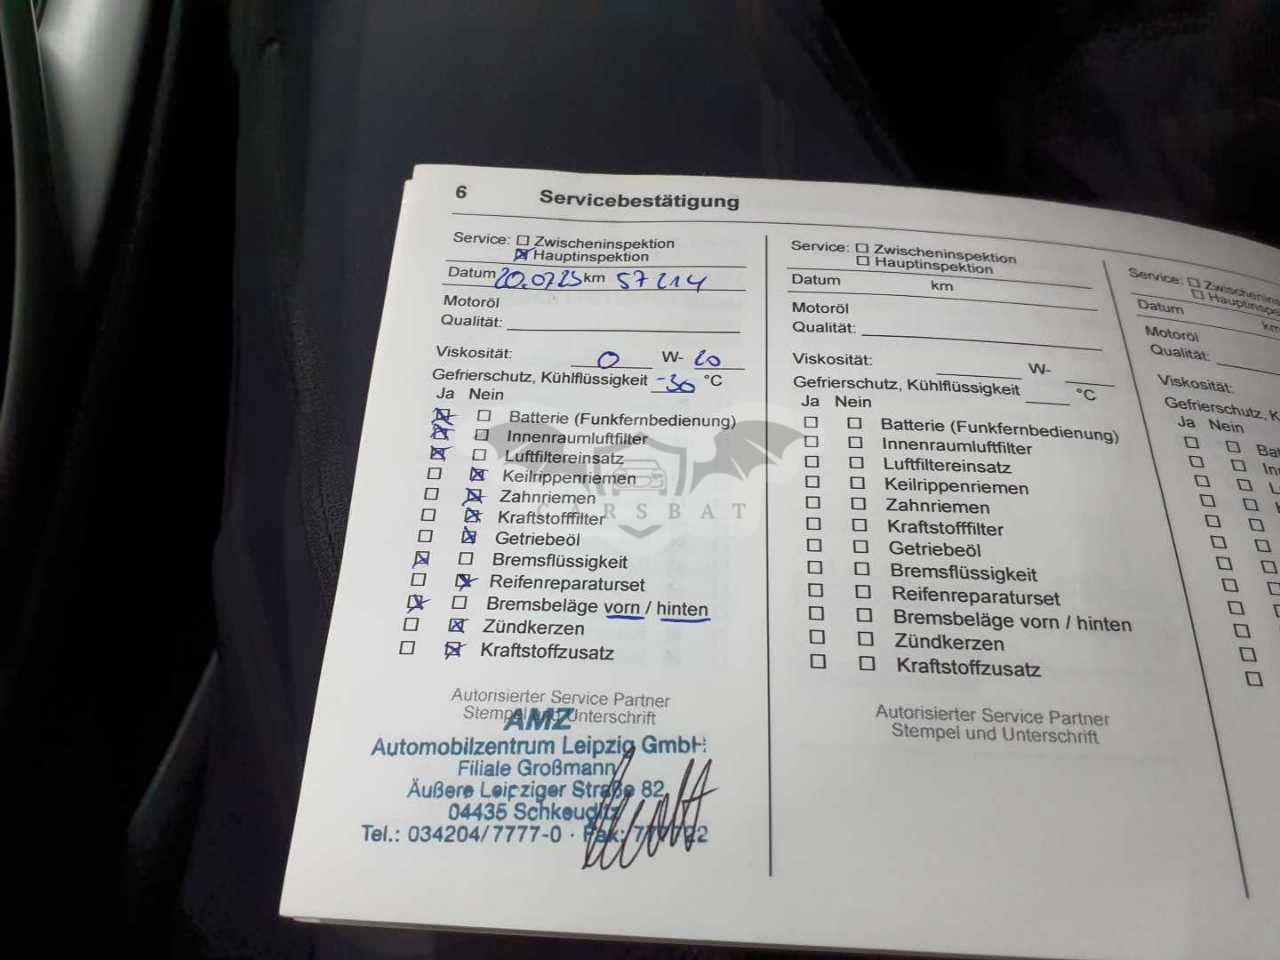 6 Servicebestätigung
Service: Zwischeninspektion
Hauptinspektion
Datum 20.07.23 km 57214
Motoröl
Qualität:
Viskosität: 0 W- 20
Gefrierschutz, Kühlflüssigkeit -30 °C
Ja Nein
Batterie (Funkfernbedienung)
Innenraumluftfilter
Luftfiltereinsatz
Keilrippenriemen
Zahnriemen
Kraftstofffilter
Getriebeöl
Bremsflüssigkeit
Reifenreparaturset
Bremsbeläge vorn / hinten
Zündkerzen
Kraftstoffzusatz
Autorisierter Service Partner
Stempel und Unterschrift
AMZ
Automobilzentrum Leipzig GmbH
Filiale Großmann
Äußere Leipziger Straße 82
04435 Schkeuditz
Tel.: 034204/7777-0 · Fax:
CARSBAT
Service: Zwischeninspektion
Hauptinspektion
Datum km
Motoröl
Qualität:
Viskosität: W-
Gefrierschutz, Kühlflüssigkeit °C
Ja Nein
Batterie (Funkfernbedienung)
Innenraumluftfilter
Luftfiltereinsatz
Keilrippenriemen
Zahnriemen
Kraftstofffilter
Getriebeöl
Bremsflüssigkeit
Reifenreparaturset
Bremsbeläge vorn / hinten
Zündkerzen
Kraftstoffzusatz
Autorisierter Service Partner
Stempel und Unterschrift
Service:
Datum km
Motoröl
Qualität:
Viskosität:
Gefrierschutz,
Ja Nein